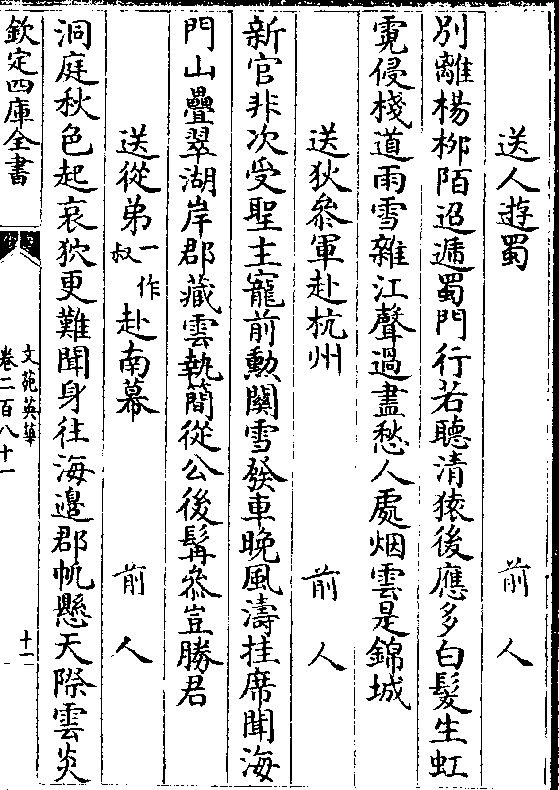 送人遊蜀　前人
別離楊柳陌迢遞蜀門行若聽清猿後應多白髮生虹
霓侵棧道雨雪雜江聲過盡愁人處烟雲是錦城
送狄參軍赴杭州　前人
新官非次受聖主寵前勲關雪發車晚風濤挂席聞海
門山疊翠湖岸郡藏雲執簡從公後髯參豈勝君
送從弟一作叔赴南幕　前人
洞庭秋色起哀狖更難聞身往海邊郡帆懸天際雲炎
欽定四庫全書
文苑英華
卷二百八十一
十一